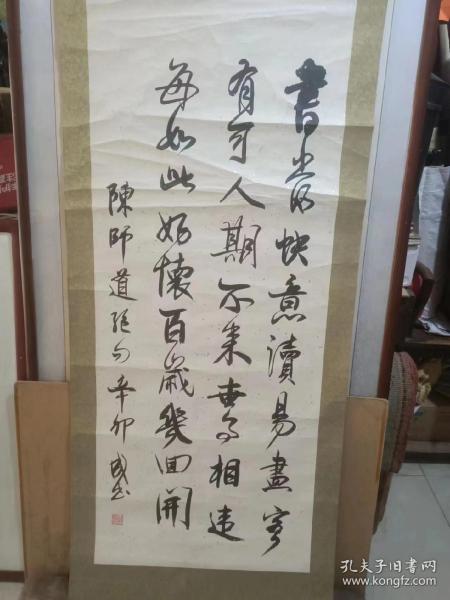 書當快意讀易盡客
有可人期不來世事相違
每如此好懷百歲幾回開
陳師道絕句辛卯
孔夫子旧书网
www.kongfz.com